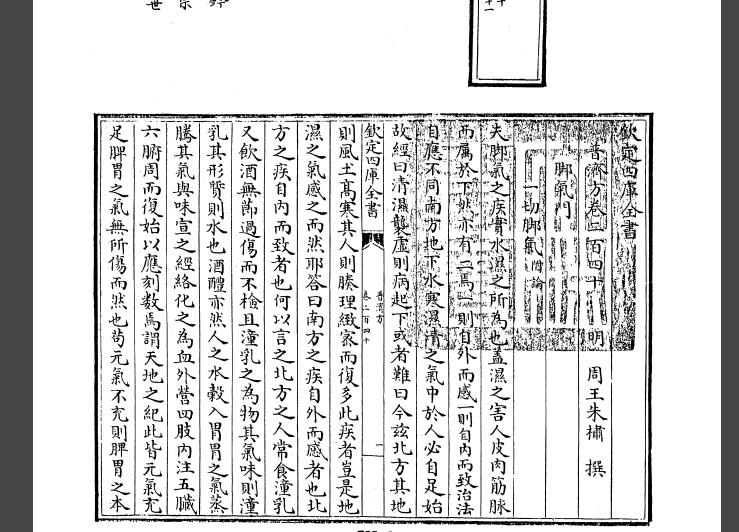 欽定四庫全書
普濟方卷二百四十 明 周王朱橚 撰
脚氣門
一切脚氣附論
夫脚氣之疾實水濕之所為也蓋濕之害人皮肉筋脉
而屬於下然亦有二焉一則自外而感一則自内而致治法
自應不同南方地下水寒濕清之氣中於人必自足始
故經曰清濕襲虚則病起下或者難曰今兹北方其地
欽定四庫全書
普濟方
卷二百四十
一
則風土髙寒其人則腠理緻宻而復多此疾者豈是地
濕之氣感之而然耶答曰南方之疾自外而感者也北
方之疾自内而致者也何以言之北方之人常食潼乳
又飲酒無節過傷而不檢且潼乳之為物其氣味則潼
乳其形質則水也酒醴亦然人之水榖入胃胃之氣蒸
騰其氣與味宣之經絡化之為血外營四肢内注五臟
六腑周而復始以應刻數焉謂天地之紀此皆元氣充
足脾胃之氣無所傷而然也苟元氣不充則脾胃之本